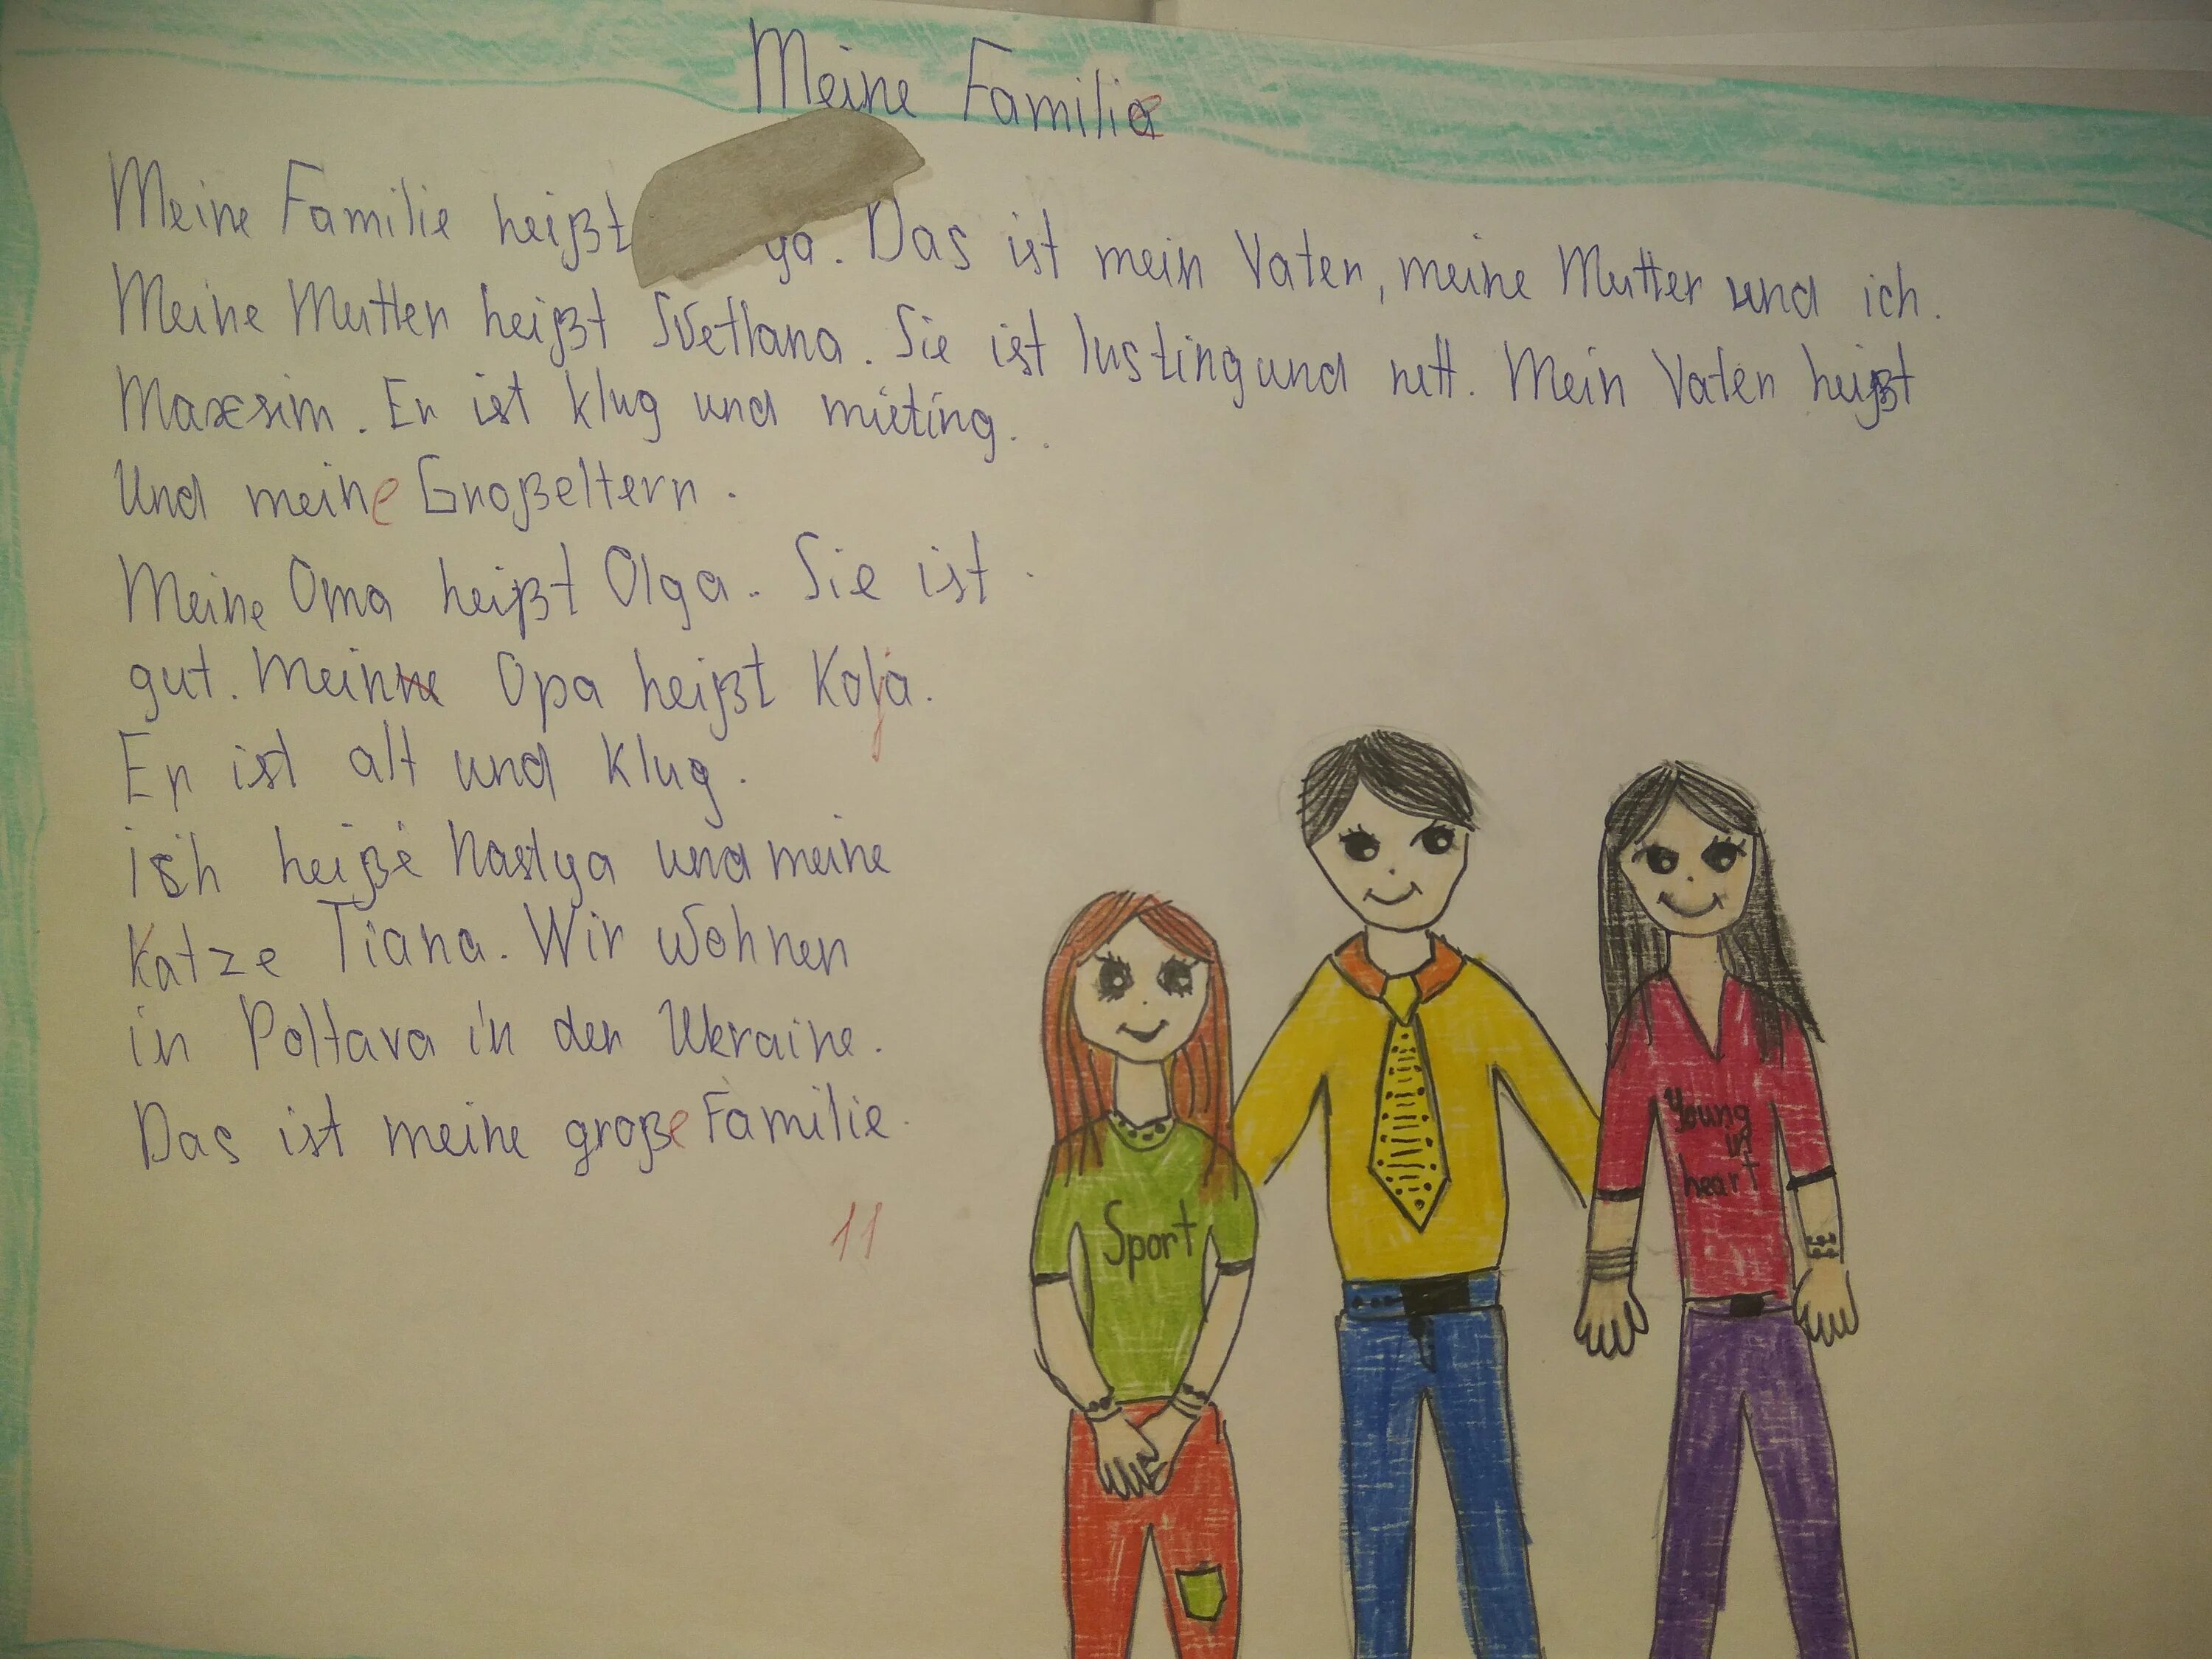 Meine Familie
Meine Familie heißt ya. Das ist mein Vater, meine Mutter und ich.
Meine Mutter heißt Svetlana. Sie ist lusting und nett. Mein Vater heißt
Maxsim. Er ist klug und mieting.
Und meine Großeltern.
Meine Oma heißt Olga. Sie ist
gut. Mein Opa heißt Kolja.
Er ist alt und klug.
ich heiße Nastya und meine
Katze Tiana. Wir wohnen
in Poltava in der Ukraine.
Das ist meine große Familie.
11
Sport
Young
in
heart